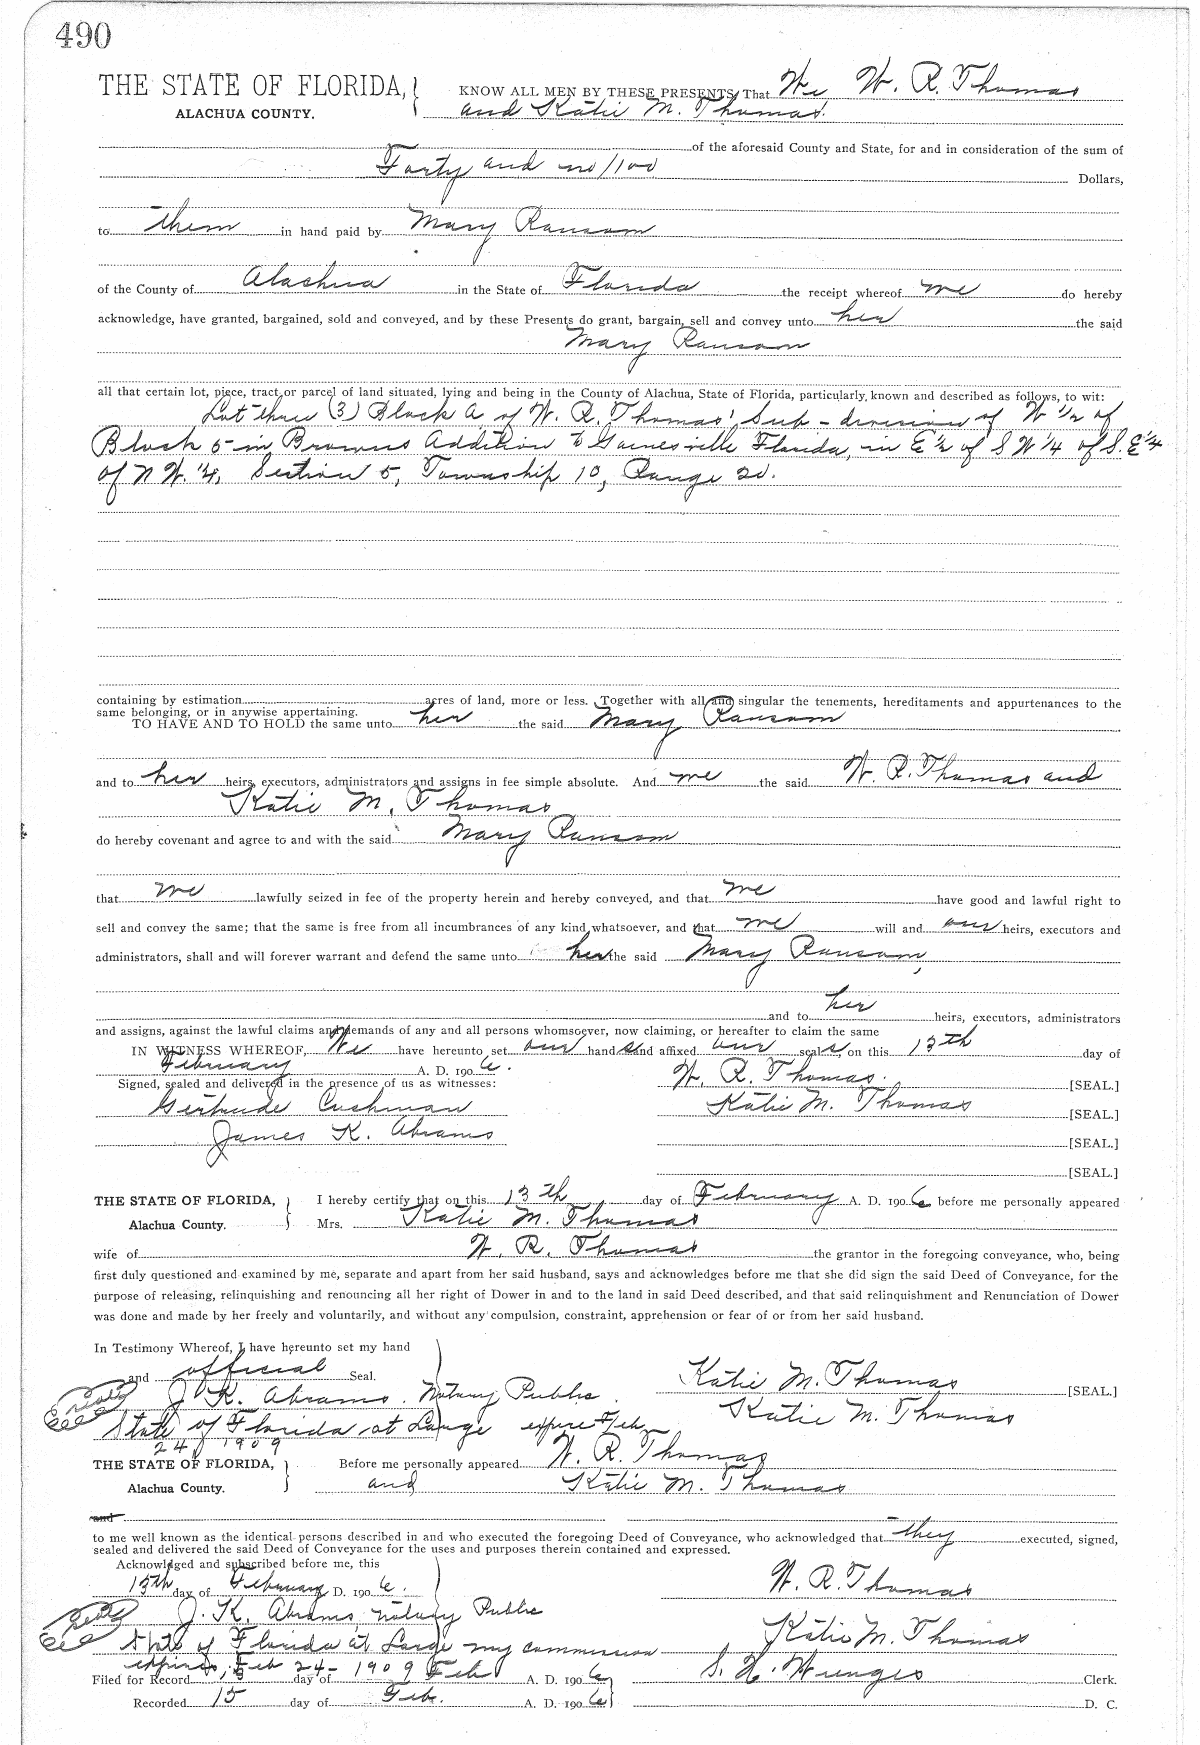 490
THE STATE OF FLORIDA, KNOW ALL MEN BY THESE PRESENTS, That We W. R. Thomas
ALACHUA COUNTY. and Katie M. Thomas
of the aforesaid County and State, for and in consideration of the sum of
Forty and no/100 Dollars,
to them in hand paid by Mary Ransom
of the County of Alachua in the State of Florida the receipt whereof we do hereby
acknowledge, have granted, bargained, sold and conveyed, and by these Presents do grant, bargain, sell and convey unto her the said
Mary Ransom
all that certain lot, piece, tract or parcel of land situated, lying and being in the County of Alachua, State of Florida, particularly known and described as follows, to wit:
Lot three (3) Block A of W. R. Thomas' Sub-division of W 1/2 of
Block 5 in Browns Addition to Gainesville Florida, in E 1/2 of S W 1/4 of S. E 1/4
of N W. 1/4, Section 5, Township 10, Range 20.
containing by estimation acres of land, more or less. Together with all and singular the tenements, hereditaments and appurtenances to the
same belonging, or in anywise appertaining.
TO HAVE AND TO HOLD the same unto her the said Mary Ransom
and to her heirs, executors, administrators and assigns in fee simple absolute. And we the said W. R. Thomas and
Katie M. Thomas
do hereby covenant and agree to and with the said Mary Ransom
that we lawfully seized in fee of the property herein and hereby conveyed, and that we have good and lawful right to
sell and convey the same; that the same is free from all incumbrances of any kind whatsoever, and that we will and our heirs, executors and
administrators, shall and will forever warrant and defend the same unto her the said Mary Ransom,
and to her heirs, executors, administrators
and assigns, against the lawful claims and demands of any and all persons whomsoever, now claiming, or hereafter to claim the same
IN WITNESS WHEREOF, We have hereunto set our hands and affixed our seals on this 13th day of
February A. D. 1906.
Signed, sealed and delivered in the presence of us as witnesses: W. R. Thomas. [SEAL.]
Gertrude Cushman Katie M. Thomas [SEAL.]
James K. Abrams [SEAL.]
[SEAL.]
THE STATE OF FLORIDA, I hereby certify that on this 13th day of February A. D. 1906 before me personally appeared
Alachua County. Mrs. Katie M. Thomas
wife of W. R. Thomas the grantor in the foregoing conveyance, who, being
first duly questioned and examined by me, separate and apart from her said husband, says and acknowledges before me that she did sign the said Deed of Conveyance, for the
purpose of releasing, relinquishing and renouncing all her right of Dower in and to the land in said Deed described, and that said relinquishment and Renunciation of Dower
was done and made by her freely and voluntarily, and without any compulsion, constraint, apprehension or fear of or from her said husband.
In Testimony Whereof, I have hereunto set my hand
and official Seal. Katie M. Thomas [SEAL.]
J. K. Abrams. Notary Public Katie M. Thomas
State of Florida at Large expire Feb
24 1909
THE STATE OF FLORIDA, Before me personally appeared W. R. Thomas
Alachua County. and Katie M. Thomas
and
to me well known as the identical persons described in and who executed the foregoing Deed of Conveyance, who acknowledged that they executed, signed,
sealed and delivered the said Deed of Conveyance for the uses and purposes therein contained and expressed.
Acknowledged and subscribed before me, this
13th day of February D. 1906. W. R. Thomas
J. K. Abrams, Notary Public
State of Florida at Large my commission Katie M. Thomas
expires, Feb 24-1909
Filed for Record day of Feb A. D. 1906 Clerk.
Recorded 15 day of Feb. A. D. 1906 D. C.